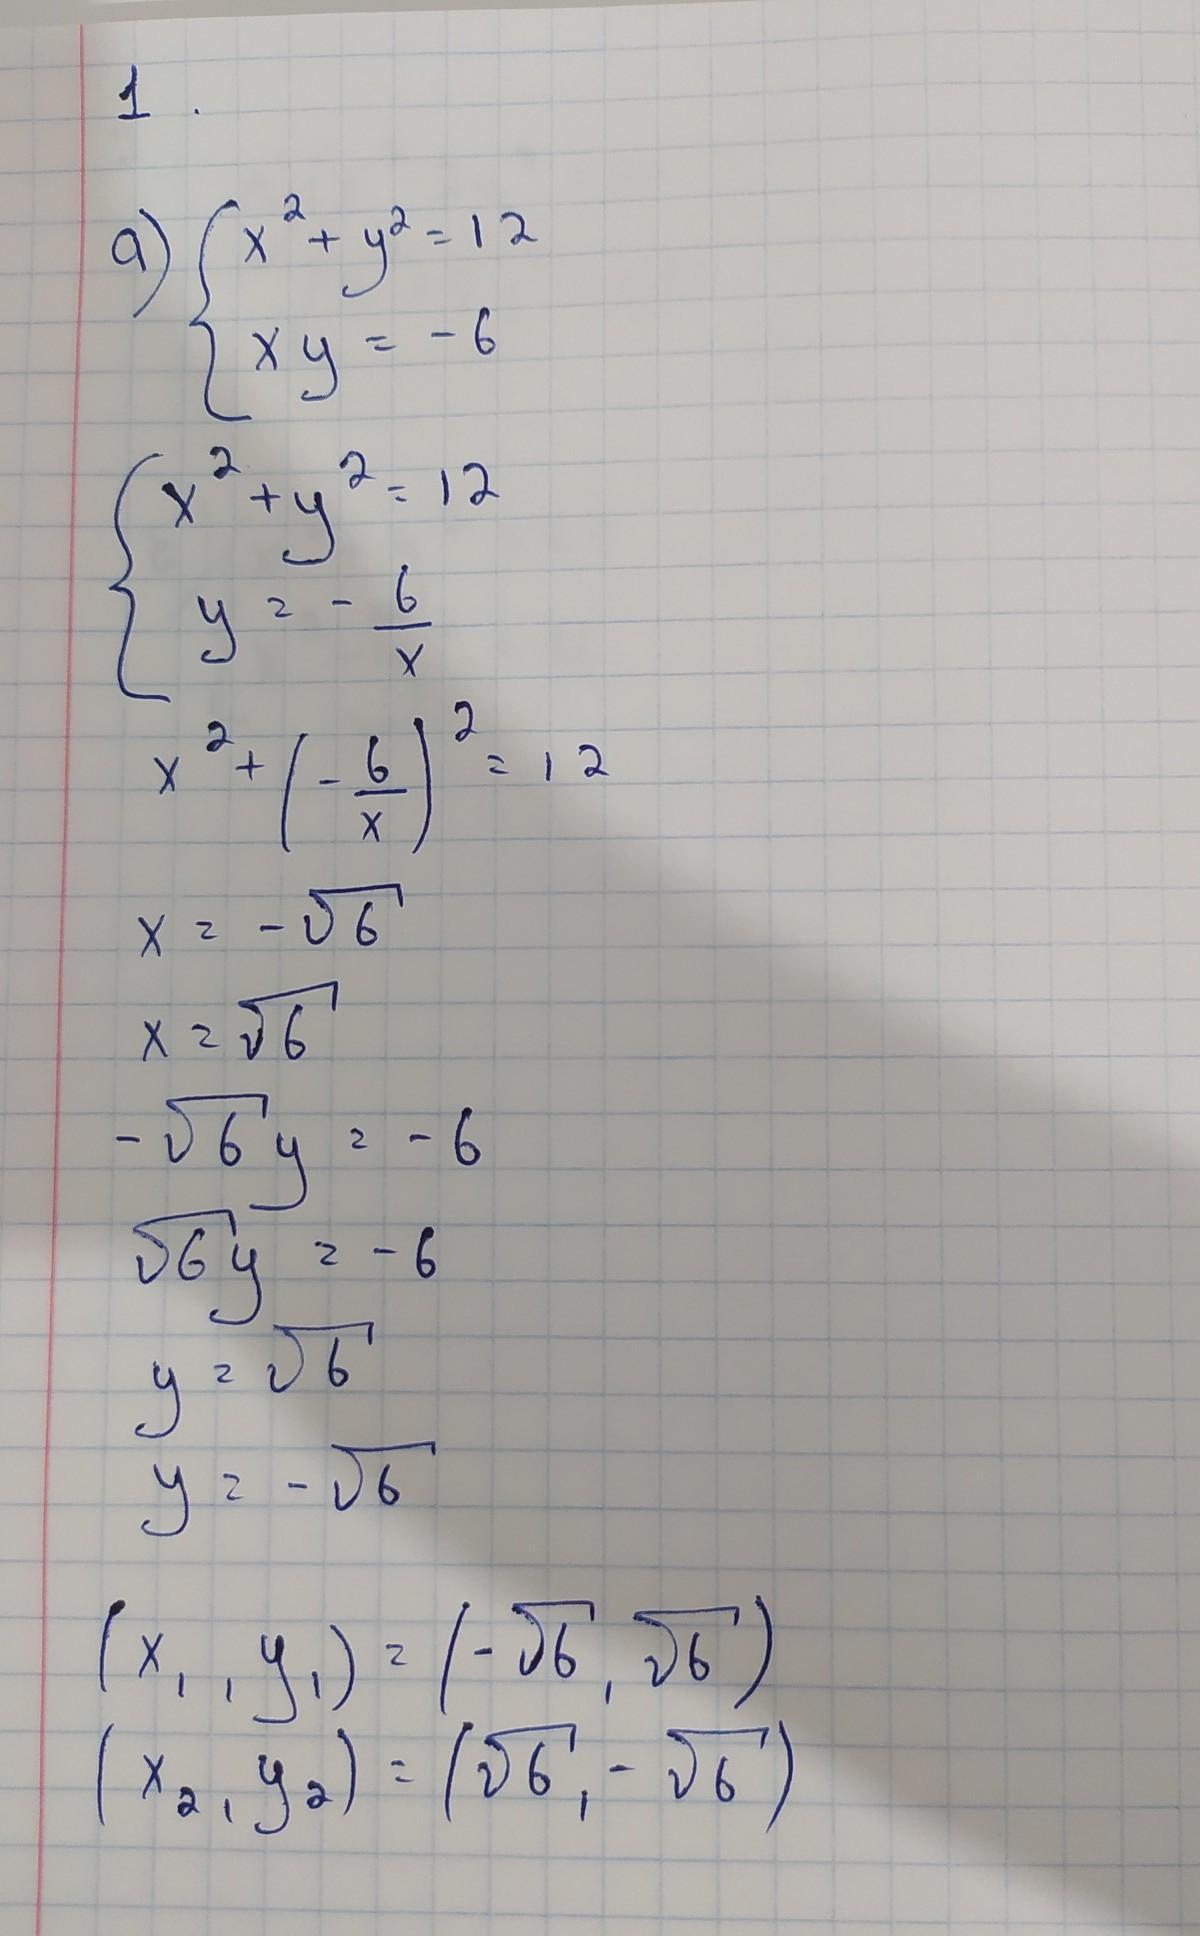 1.
а) { x² + y² = 12
xy = -6
{ x² + y² = 12
y = - 6/x
x² + (- 6/x)² = 12
x = -√6
x = √6
-√6 y = -6
√6 y = -6
y = √6
y = -√6
(x₁, y₁) = (-√6, √6)
(x₂, y₂) = (√6, -√6)